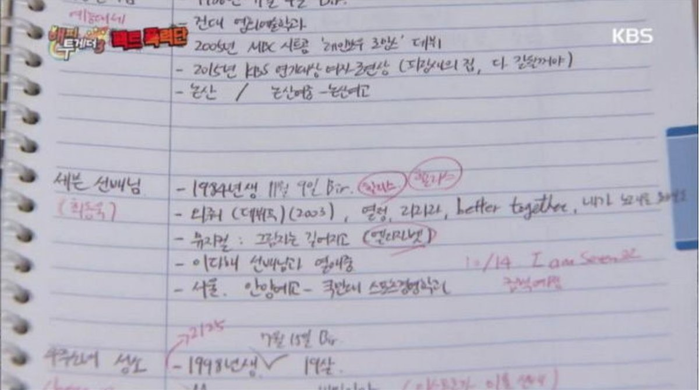 해피투게더3 팩트 폭격단
KBS
예능대세
- 건대 영화예술학과
- 2005년 MBC 시트콤 '레인보우 로망스' 데뷔
- 2015년 KBS 연기대상 여자 조연상 (파랑새의 집, 다 잘될거야)
- 논산 / 논산여중 - 논산여고
세븐 선배님 - 1984년생 11월 9일 Bir.
(최동욱) - 와줘 (데뷔곡)(2003), 열정, 라라라, better together, 내가 노래를
- 뮤지컬 : 그림자는 길어지고 (엘리자벳)
- 이다해 선배님과 열애중
10/14 I am Seven
- 서울. 안양예고 - 국민대 스포츠경영학과
컴백예정
2/25
7월 18일 Bir.
우주소녀 성소 - 1998년생 19살